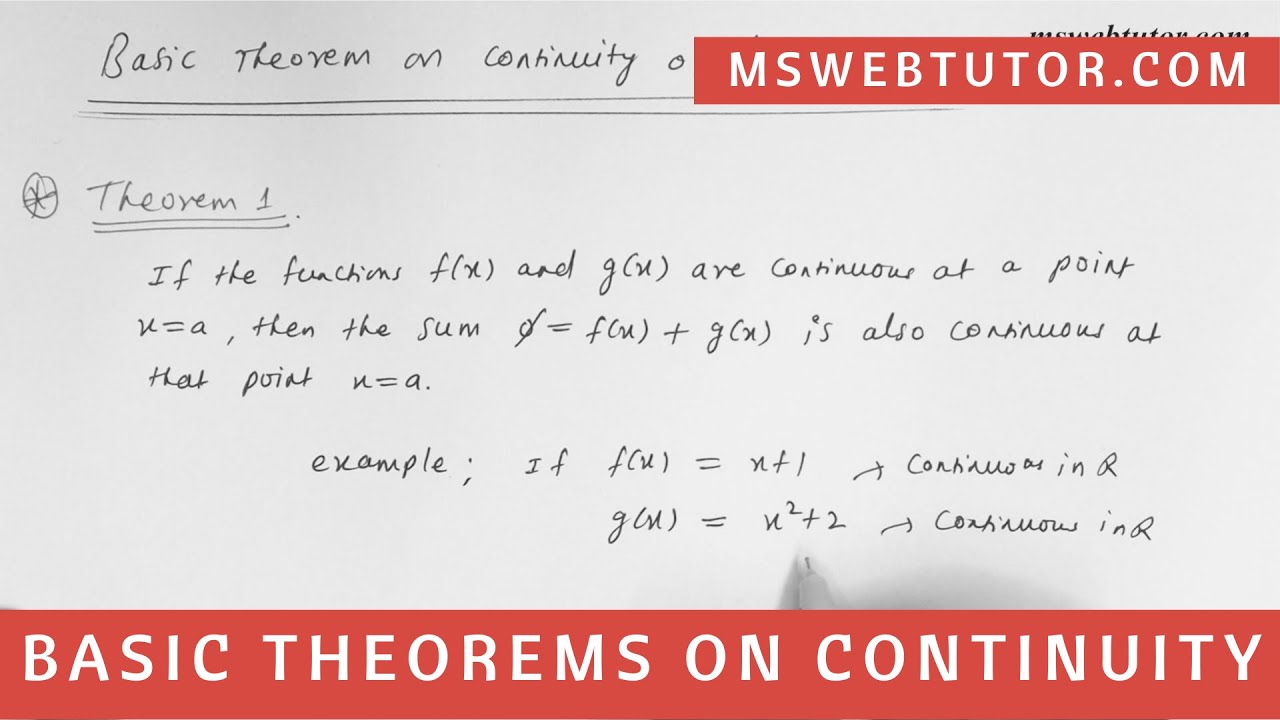 Basic Theorem on Continuity
MSWEBTUTOR.COM
Theorem 1.
If the functions f(x) and g(x) are continuous at a point
x=a, then the sum φ = f(x) + g(x) is also continuous at
that point x=a.
example; If f(x) = x+1 → Continuous in R
g(x) = x²+2 → Continuous in R
BASIC THEOREMS ON CONTINUITY